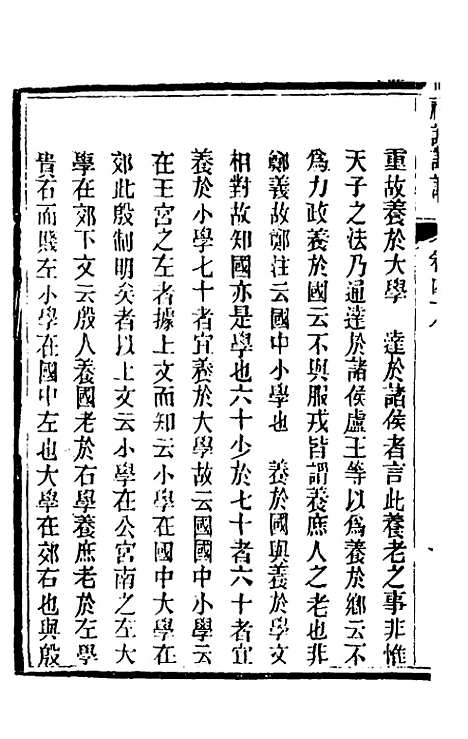 重故養於大學　達於諸侯者言此養老之事非惟
天子之法乃通達於諸侯盧王等以爲養於鄉云不
爲力政養於國云不與服戎皆謂養庶人之老也非
鄭義故鄭注云國中小學也　養於國與養於學文
相對故知國亦是學也六十少於七十者六十者宜
養於小學七十者宜養於大學故云國國中小學云
在王宮之左者據上文而知云小學在國中大學在
郊此殷制明矣者以上文云小學在公宮南之左大
學在郊下文云殷人養國老於右學養庶老於左學
貴右而賤左小學在國中左也大學在郊右也與殷